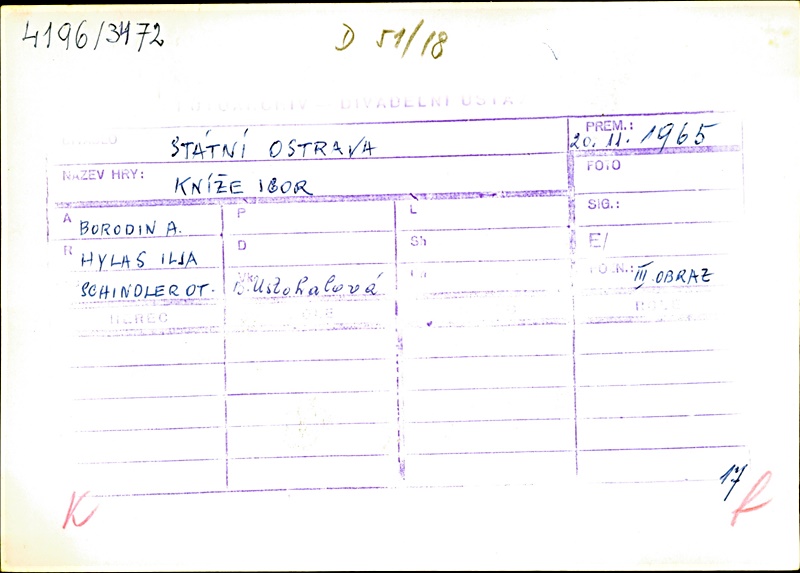 4196/3472
D 51/18
DIVADELNÍ ÚSTAV
STÁTNÍ OSTRAVA
PREM.: 20. 11. 1965
NÁZEV HRY: KNÍŽE IGOR
FOTO
SIG.:
A BORODIN A. P L
R HYLAS ILJA D Sh E/
SCHINDLER OT. B. Ustohalová III. OBRAZ
HEREC
17
K R